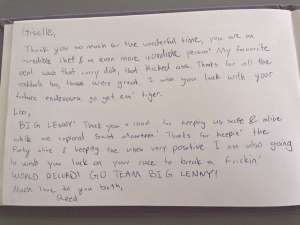 Giselle,
Thank you so much for the wonderful time, you are an
incredible chef & an even more incredible person! My favorite
meal was that curry dish, that kicked ass. Thanks for all the
cocktails too, those were great. I wish you luck with your
future endeavors go get em' tiger.
Leo,
BIG LENNY! Thank you a ton for keeping us safe & alive
while we explored. Thanks for keepin' the
Party alive & keeping the vibes very positive I am also going
to wish you luck on your race to break a frickin'
WORLD RECORD! GO TEAM BIG LENNY!
Much love to you both,
Reed